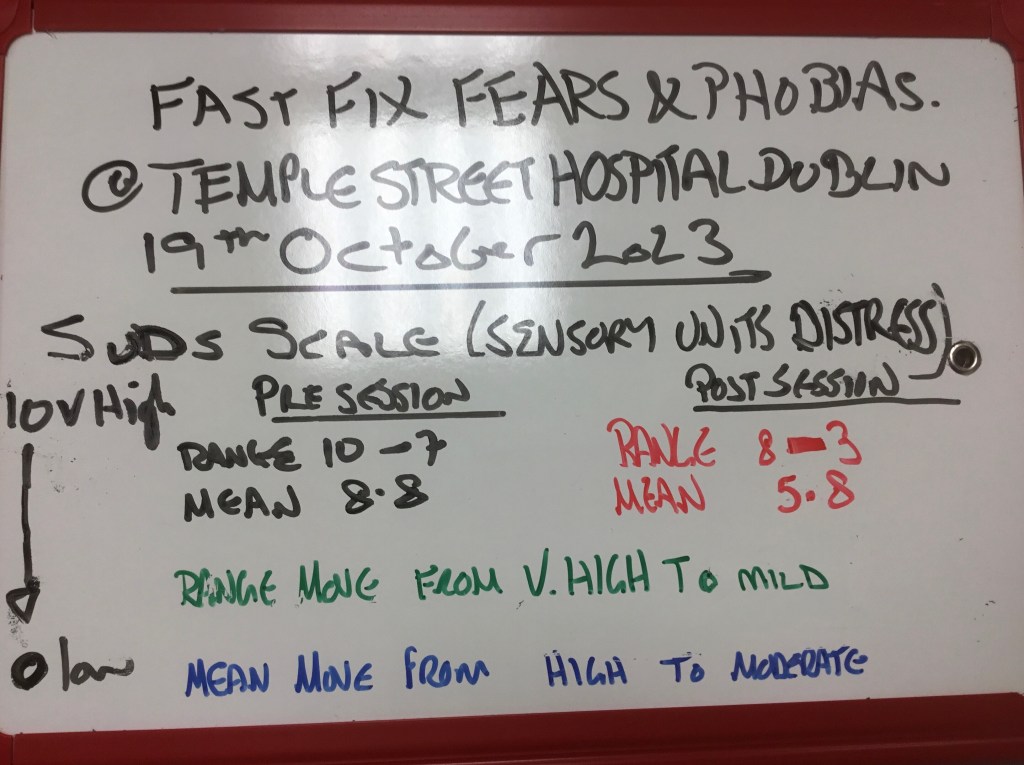 FAST FIX FEARS & PHOBIAS.
@ TEMPLE STREET HOSPITAL DUBLIN
19th October 2023
SUDS SCALE (SENSORY UNITS DISTRESS)
10 V High PRE SESSION POST SESSION
RANGE 10 - 7 RANGE 8 - 3
MEAN 8.8 MEAN 5.8
RANGE MOVE FROM V. HIGH TO MILD
0 low MEAN MOVE FROM HIGH TO MODERATE